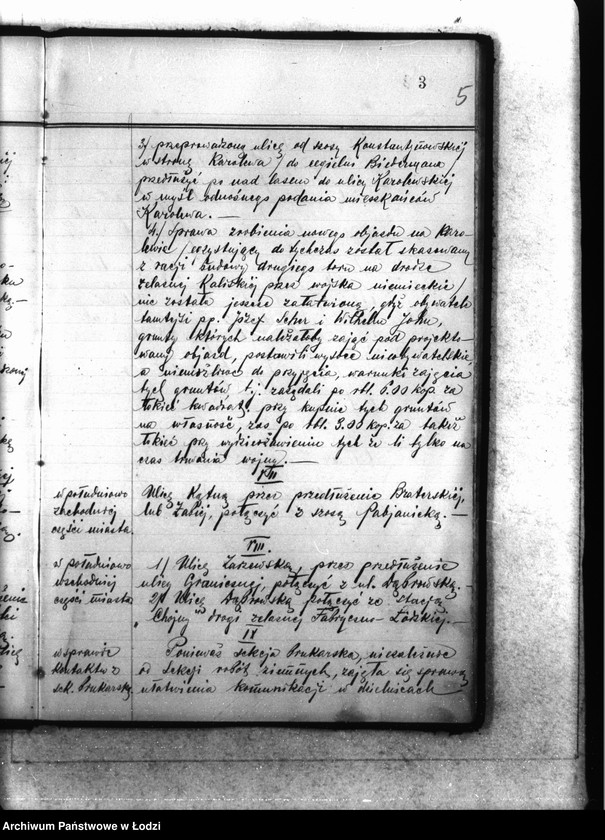 3
5
3/ przeprowadzoną ulicę od szosy Konstantynowskiej
w stronę Karolewa / do cegielni Biedermana /
przedłużyć po nad lasem do ulicy Karolewskiej
w myśl odnośnego podania mieszkańców
Karolewa. —
4/ Sprawa zrobienia nowego objazdu na Karo-
lewie / egzystujący dotychczas został skasowany
z racji budowy drugiego toru na drodze
żelaznej Kaliskiej przez wojska niemieckie /
nie została jeszcze załatwioną, gdyż obywatele
tamtejsi p.p. Józef Scher i Wilhelm John,
grunty których należałoby zająć pod projekto-
wany objazd, postawili wysoce nieobywatelskie
a niemożliwe do przyjęcia, warunki zajęcia
tych gruntów t.j. zażądali po rbl. 6.00 kop. za
łokieć kwadrat. przy kupnie tych gruntów
na własność, zaś po rbl. 3.00 kop. za takiż
łokieć przy wydzierżawieniu tych że li tylko na
czas trwania wojny. —
VII
w południowo
zachodniej
części miasta.
Ulicę Kątną przez przedłużenie Braterskiej,
lub Żabiej, połączyć z szosą Pabjanicką. —
VIII.
w południowo
wschodniej
części miasta
1/ Ulicę Zarzewską, przez przedłużenie
ulicy Granicznej, połączyć z ul. Dąbrowską. —
2/ Ulicę Dąbrowską połączyć ze stacją
Chojny drogi żelaznej Fabryczno-Łódzkiej. —
IX
w sprawie
kontaktu z
sek. Brukarską
Ponieważ Sekcja Brukarska, niezależnie
od Sekcji robót ziemnych, zajęła się sprawą
ułatwienia komunikacji w dzielnicach
Archiwum Państwowe w Łodzi